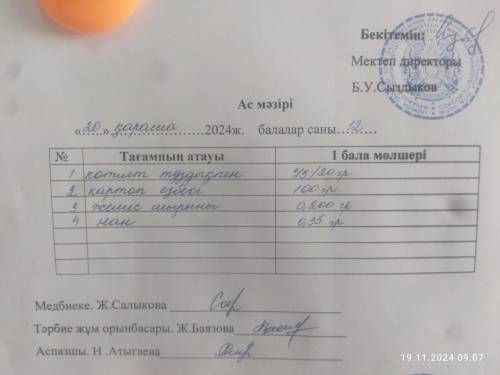 Бекітемін:
Мектеп директоры
Б.У.Сыздыков
Ас мәзірі
«20» қараша 2024ж. балалар саны 12
№ Тағамның атауы 1 бала мөлшері
1 котлет тұздықпен /20 гр
2 картоп езбесі 100 гр
3 жеміс шырыны 0,200 гр
4 нан 0,35 гр
Медбиеке. Ж.Салыкова
Тәрбие жұм орынбасары. Ж.Баязова
Аспазшы. Н .Атыгаева
19.11.2024 09:07